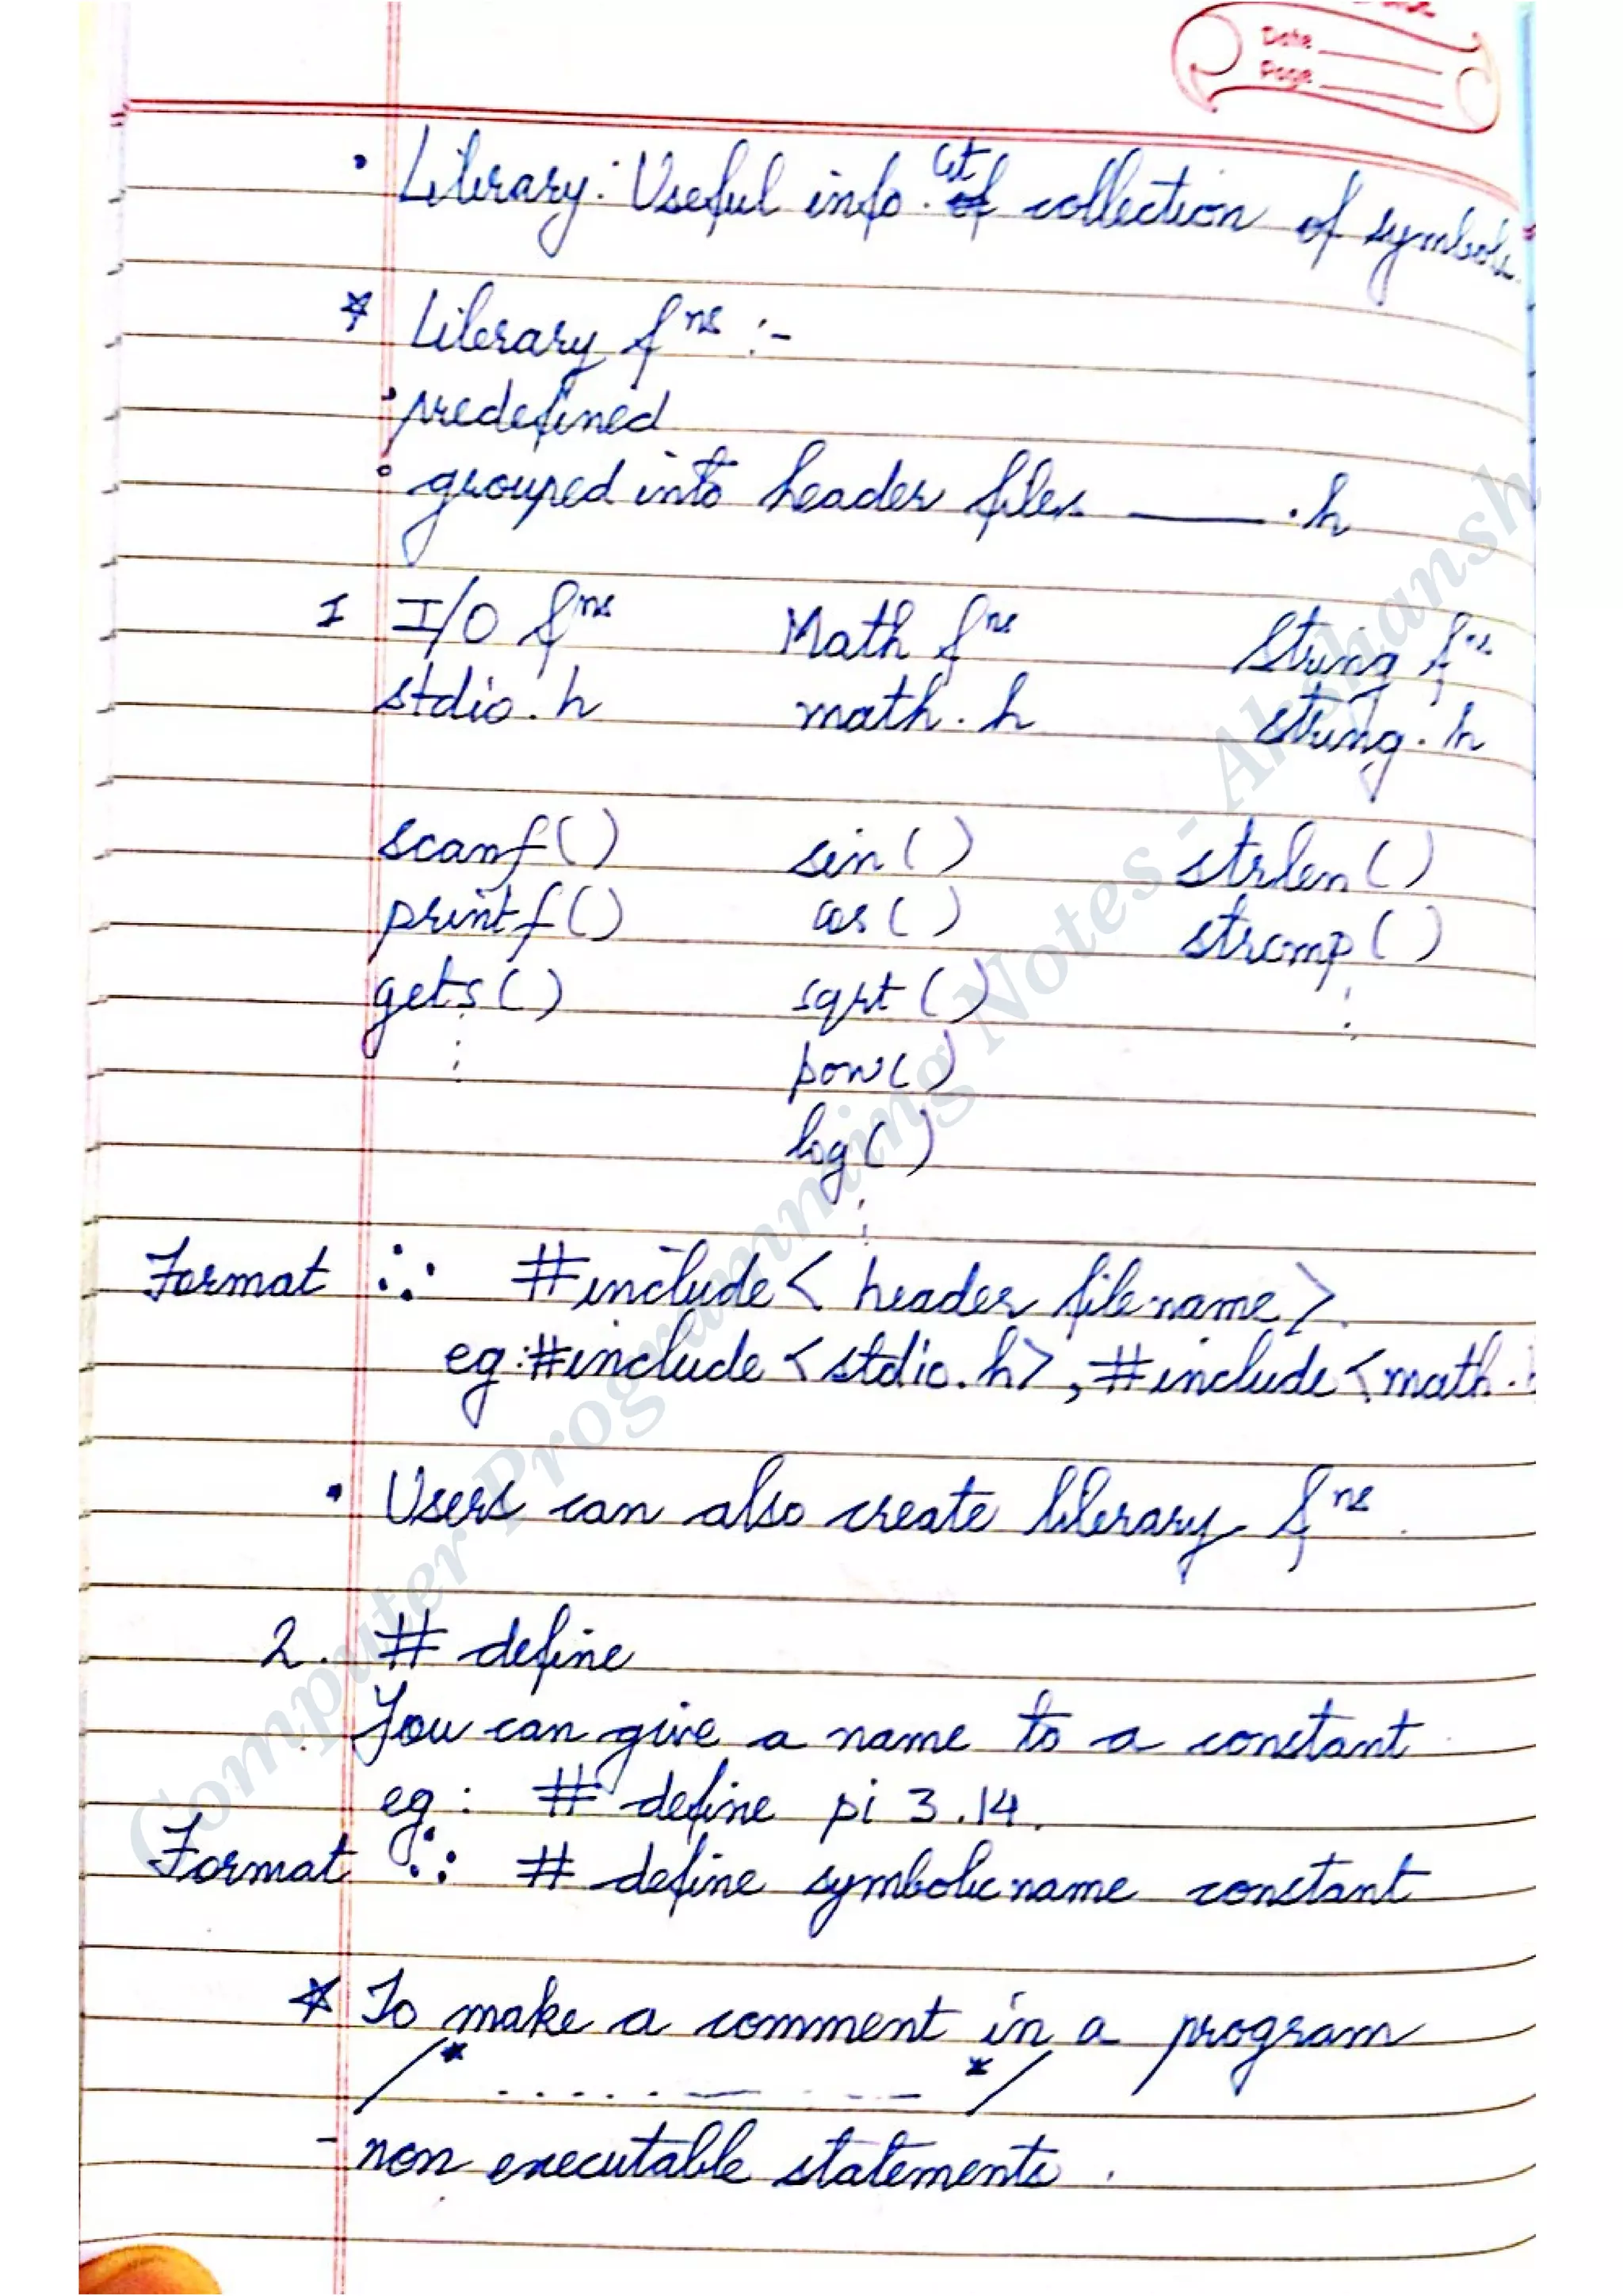 Date
Page
• Library: Useful info. of collection of symbols.
* Library fns :-
• predefined
• grouped into header files ____ .h
I I/O fns Math fns String fns
stdio.h math.h string.h
scanf() sin() strlen()
printf() cos() strcmp()
gets() sqrt() :
: pow()
log()
:
Format ∴ #include< header filename>.
eg:#include<stdio.h>, #include<math.
• Users can also create library fns.
2. # define
You can give a name to a constant
eg: # define pi 3.14.
Format ∴ # define symbolic name constant
* To make a comment in a program
/* ..... — --- */
- non executable statements.
Computer Programming Notes - Akshansh